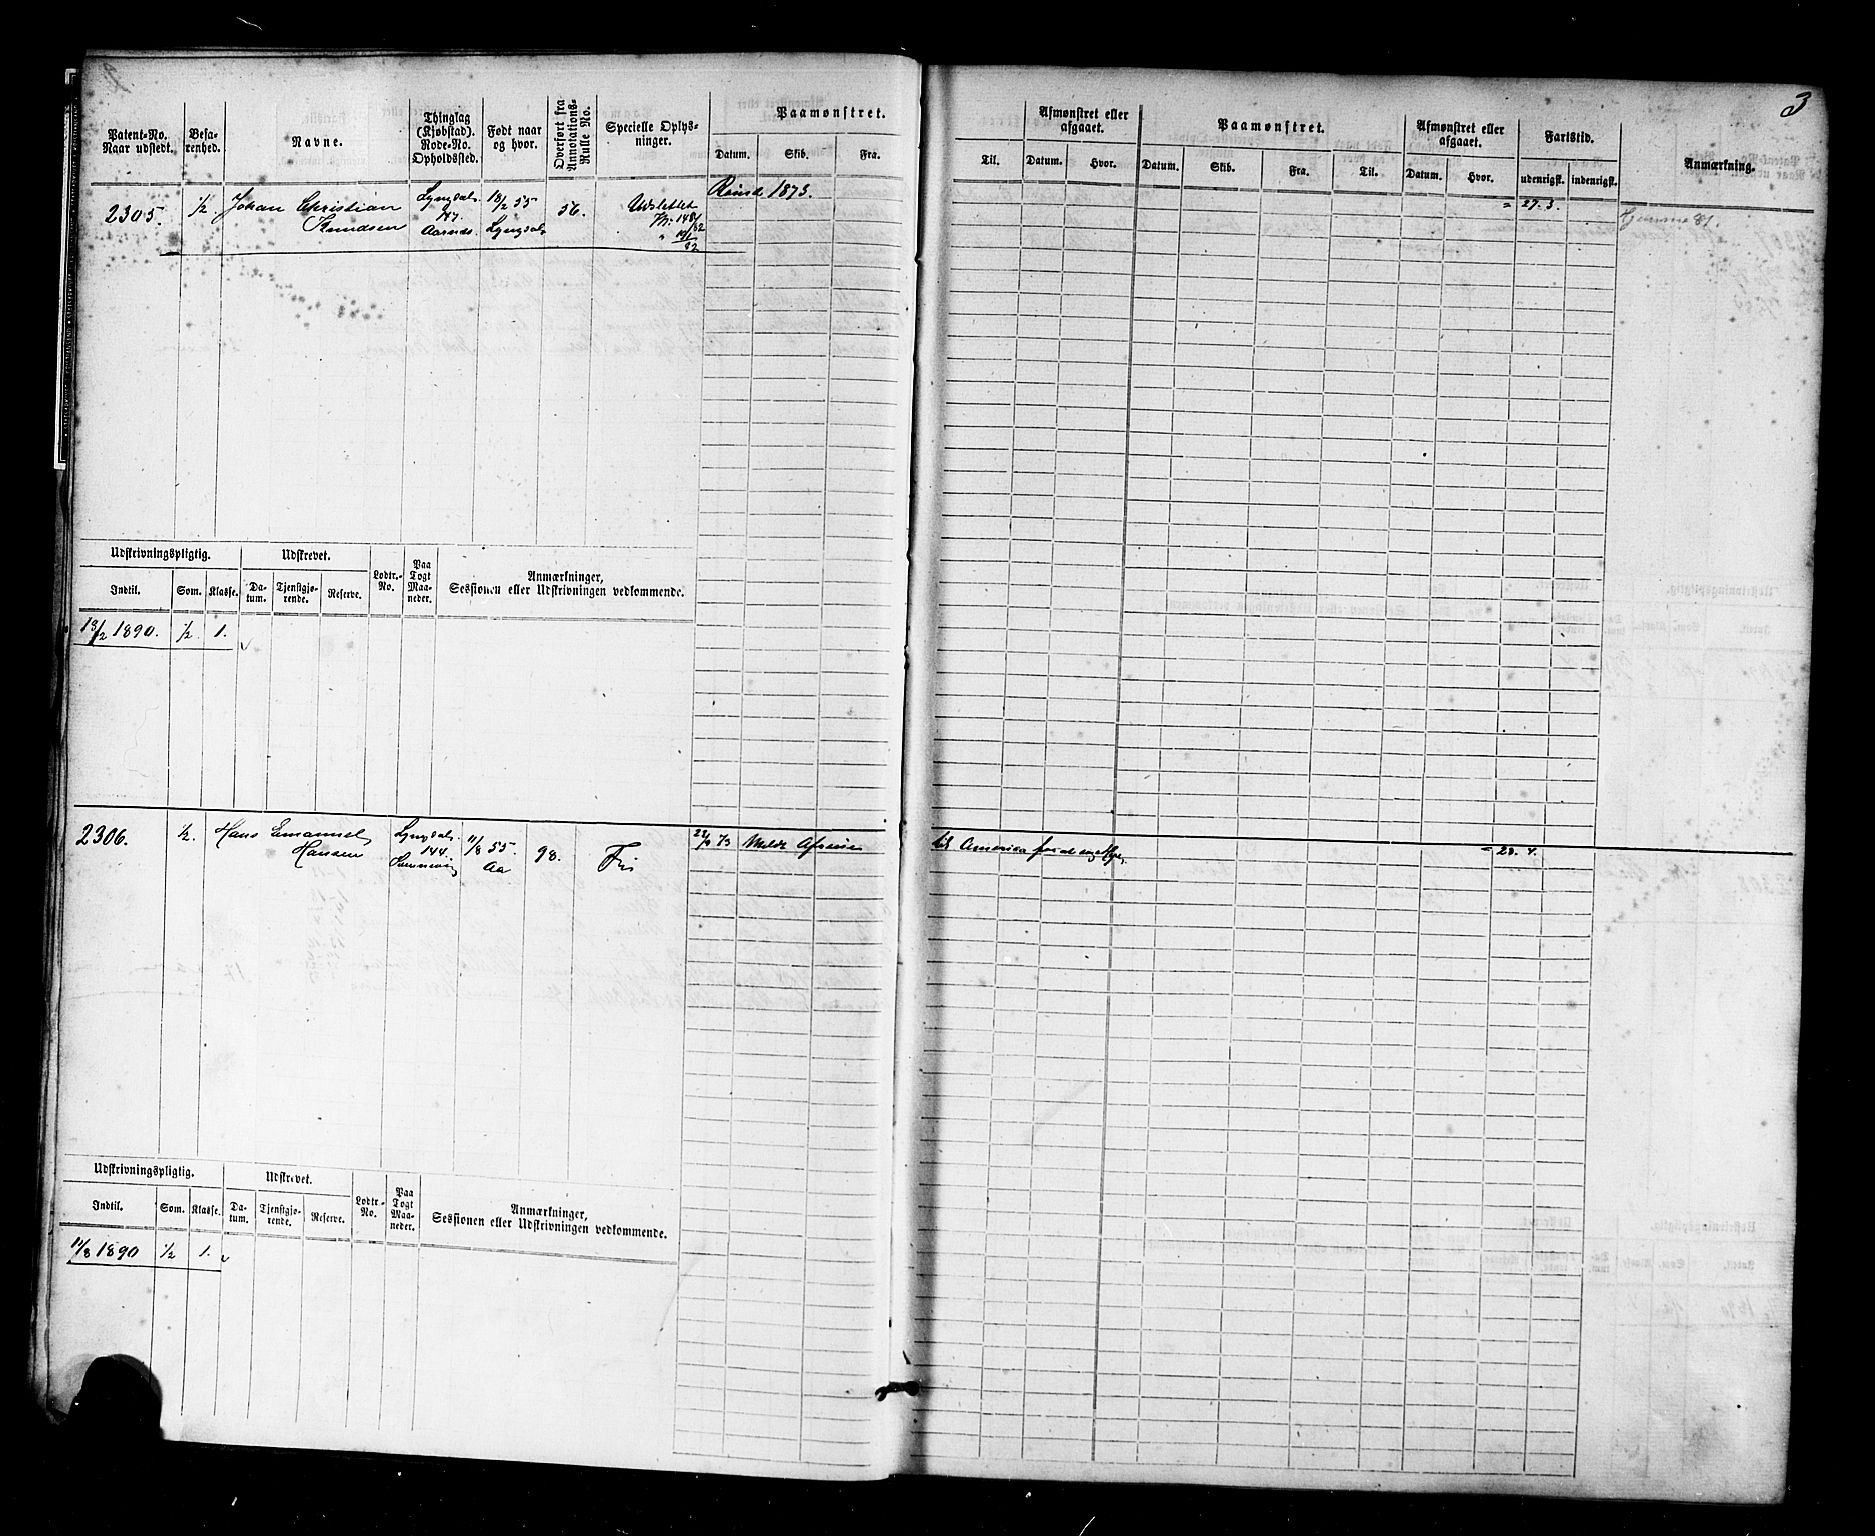 3
Patent-No. Naar udstedt.
Befarenhed.
Navne.
Thinglag (Kjøbstad). Rode-No. Opholdssted.
Født naar og hvor.
Overført fra Annotations-Rulle No.
Specielle Oplysninger.
Paamønstret.
Datum. Skib. Fra.
Til.
Afmønstret eller afgaaet.
Datum. Hvor.
Paamønstret.
Datum. Skib. Fra. Til.
Afmønstret eller afgaaet.
Datum. Hvor.
Fartstid.
udenrigst. indenrigst.
Anmærkning.
2305. 1/2 Johan Christian Lyngdal. 18/2 55 56. Udslettet Reind 1873. = 27. 3. Hjemme 81.
Knudsen Lyngdal
Udskrivningspligtig. Udskrevet. Lodtr.-No. Paa Togt Maaneder. Anmærkninger, Sessionen eller Udskrivningen vedkommende.
Indtil. Som. Klasse. Datum. Tjenstgjørende. Reserve.
18/2 1890. 1/2. 1.
2306. 1/2. Hans Emanuel Lyngdal. 11/8 55. 98. Fri Meldt Afreise til America = 28. 4.
Hansen 144. Aa
Udskrivningspligtig. Udskrevet. Lodtr.-No. Paa Togt Maaneder. Anmærkninger, Sessionen eller Udskrivningen vedkommende.
Indtil. Som. Klasse. Datum. Tjenstgjørende. Reserve.
11/8 1890 1/2 1.